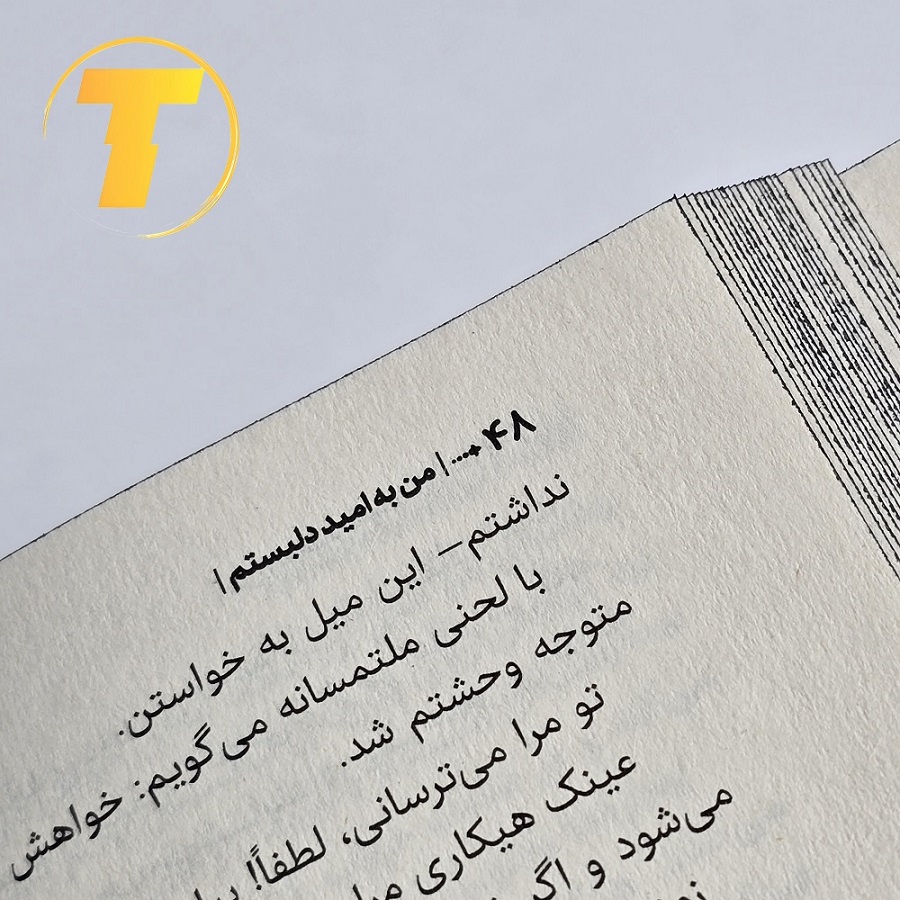 T
۴۸ ... | من به امید دل بستم |
نداشتم– این میل به خواستن.
با لحنی ملتمسانه می‌گویم: خواهش
متوجه وحشتم شد.
تو مرا می‌ترسانی، لطفاً!
عینک هیکاری
می‌شود و اگر